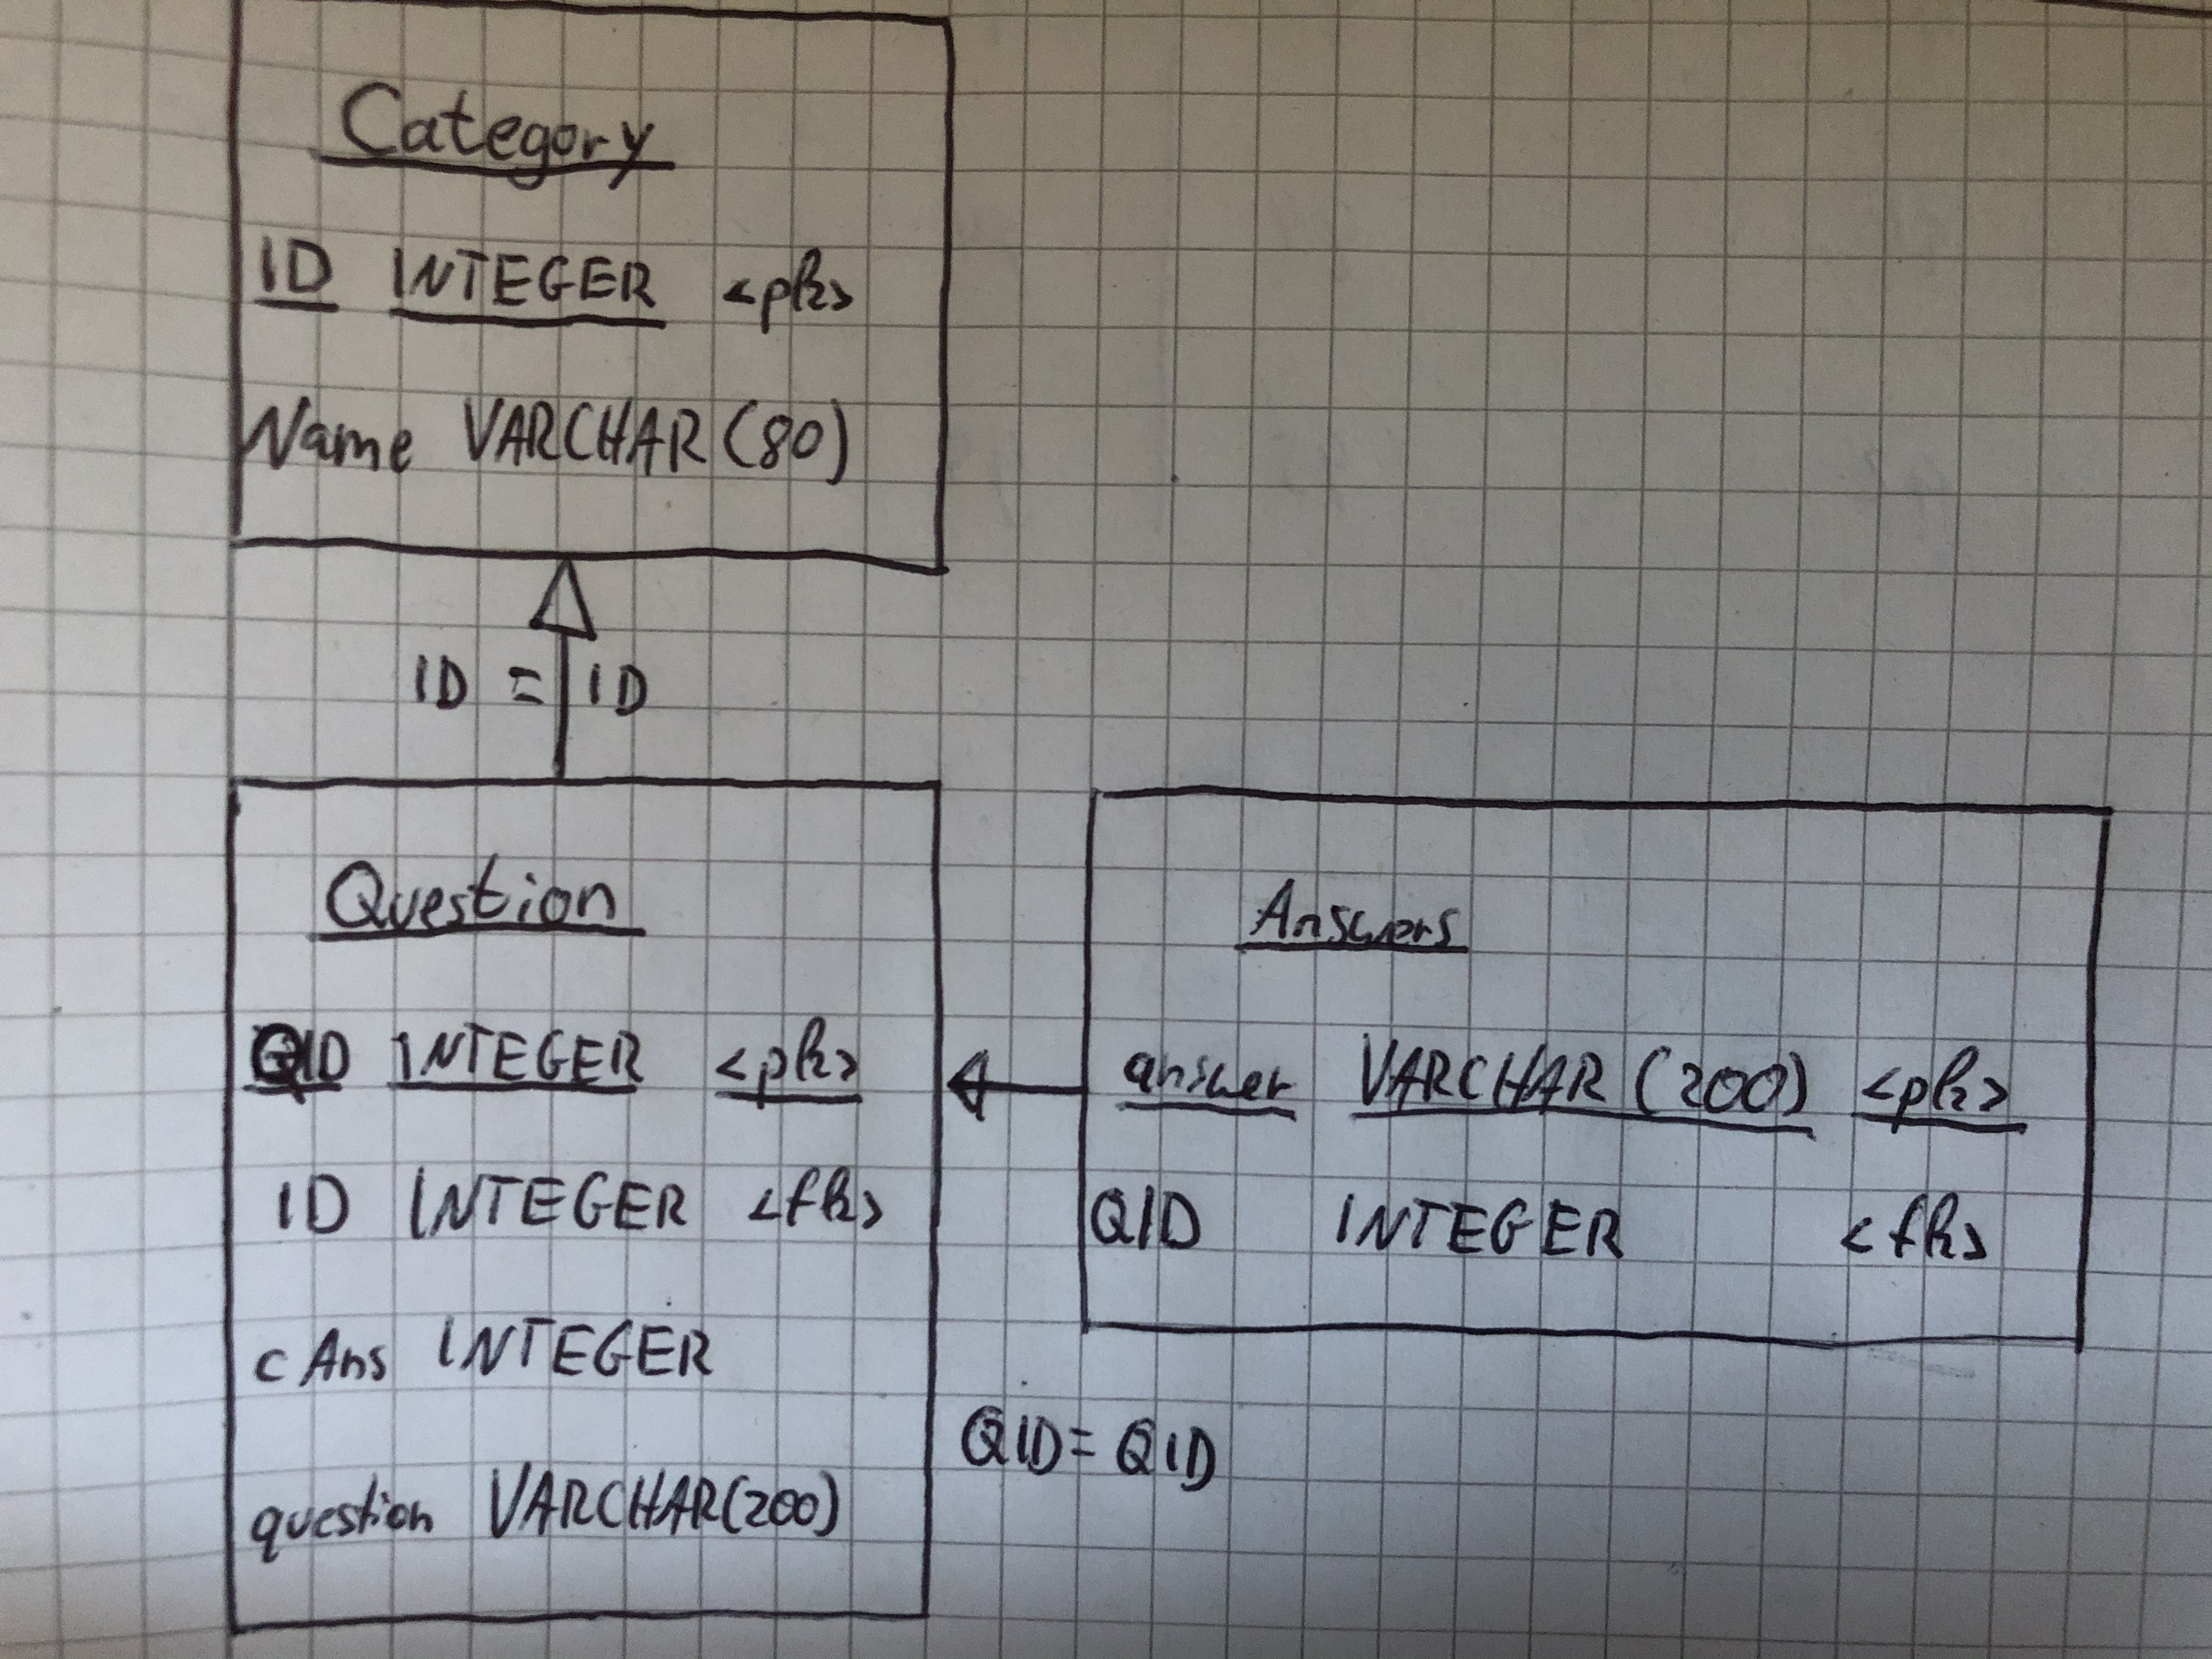 Category
ID INTEGER <pk>
Name VARCHAR(80)
ID = ID
Question
QID INTEGER <pk>
ID INTEGER <fk>
cAns INTEGER
question VARCHAR(200)
Answers
answer VARCHAR(200) <pk>
QID INTEGER <fk>
QID = QID